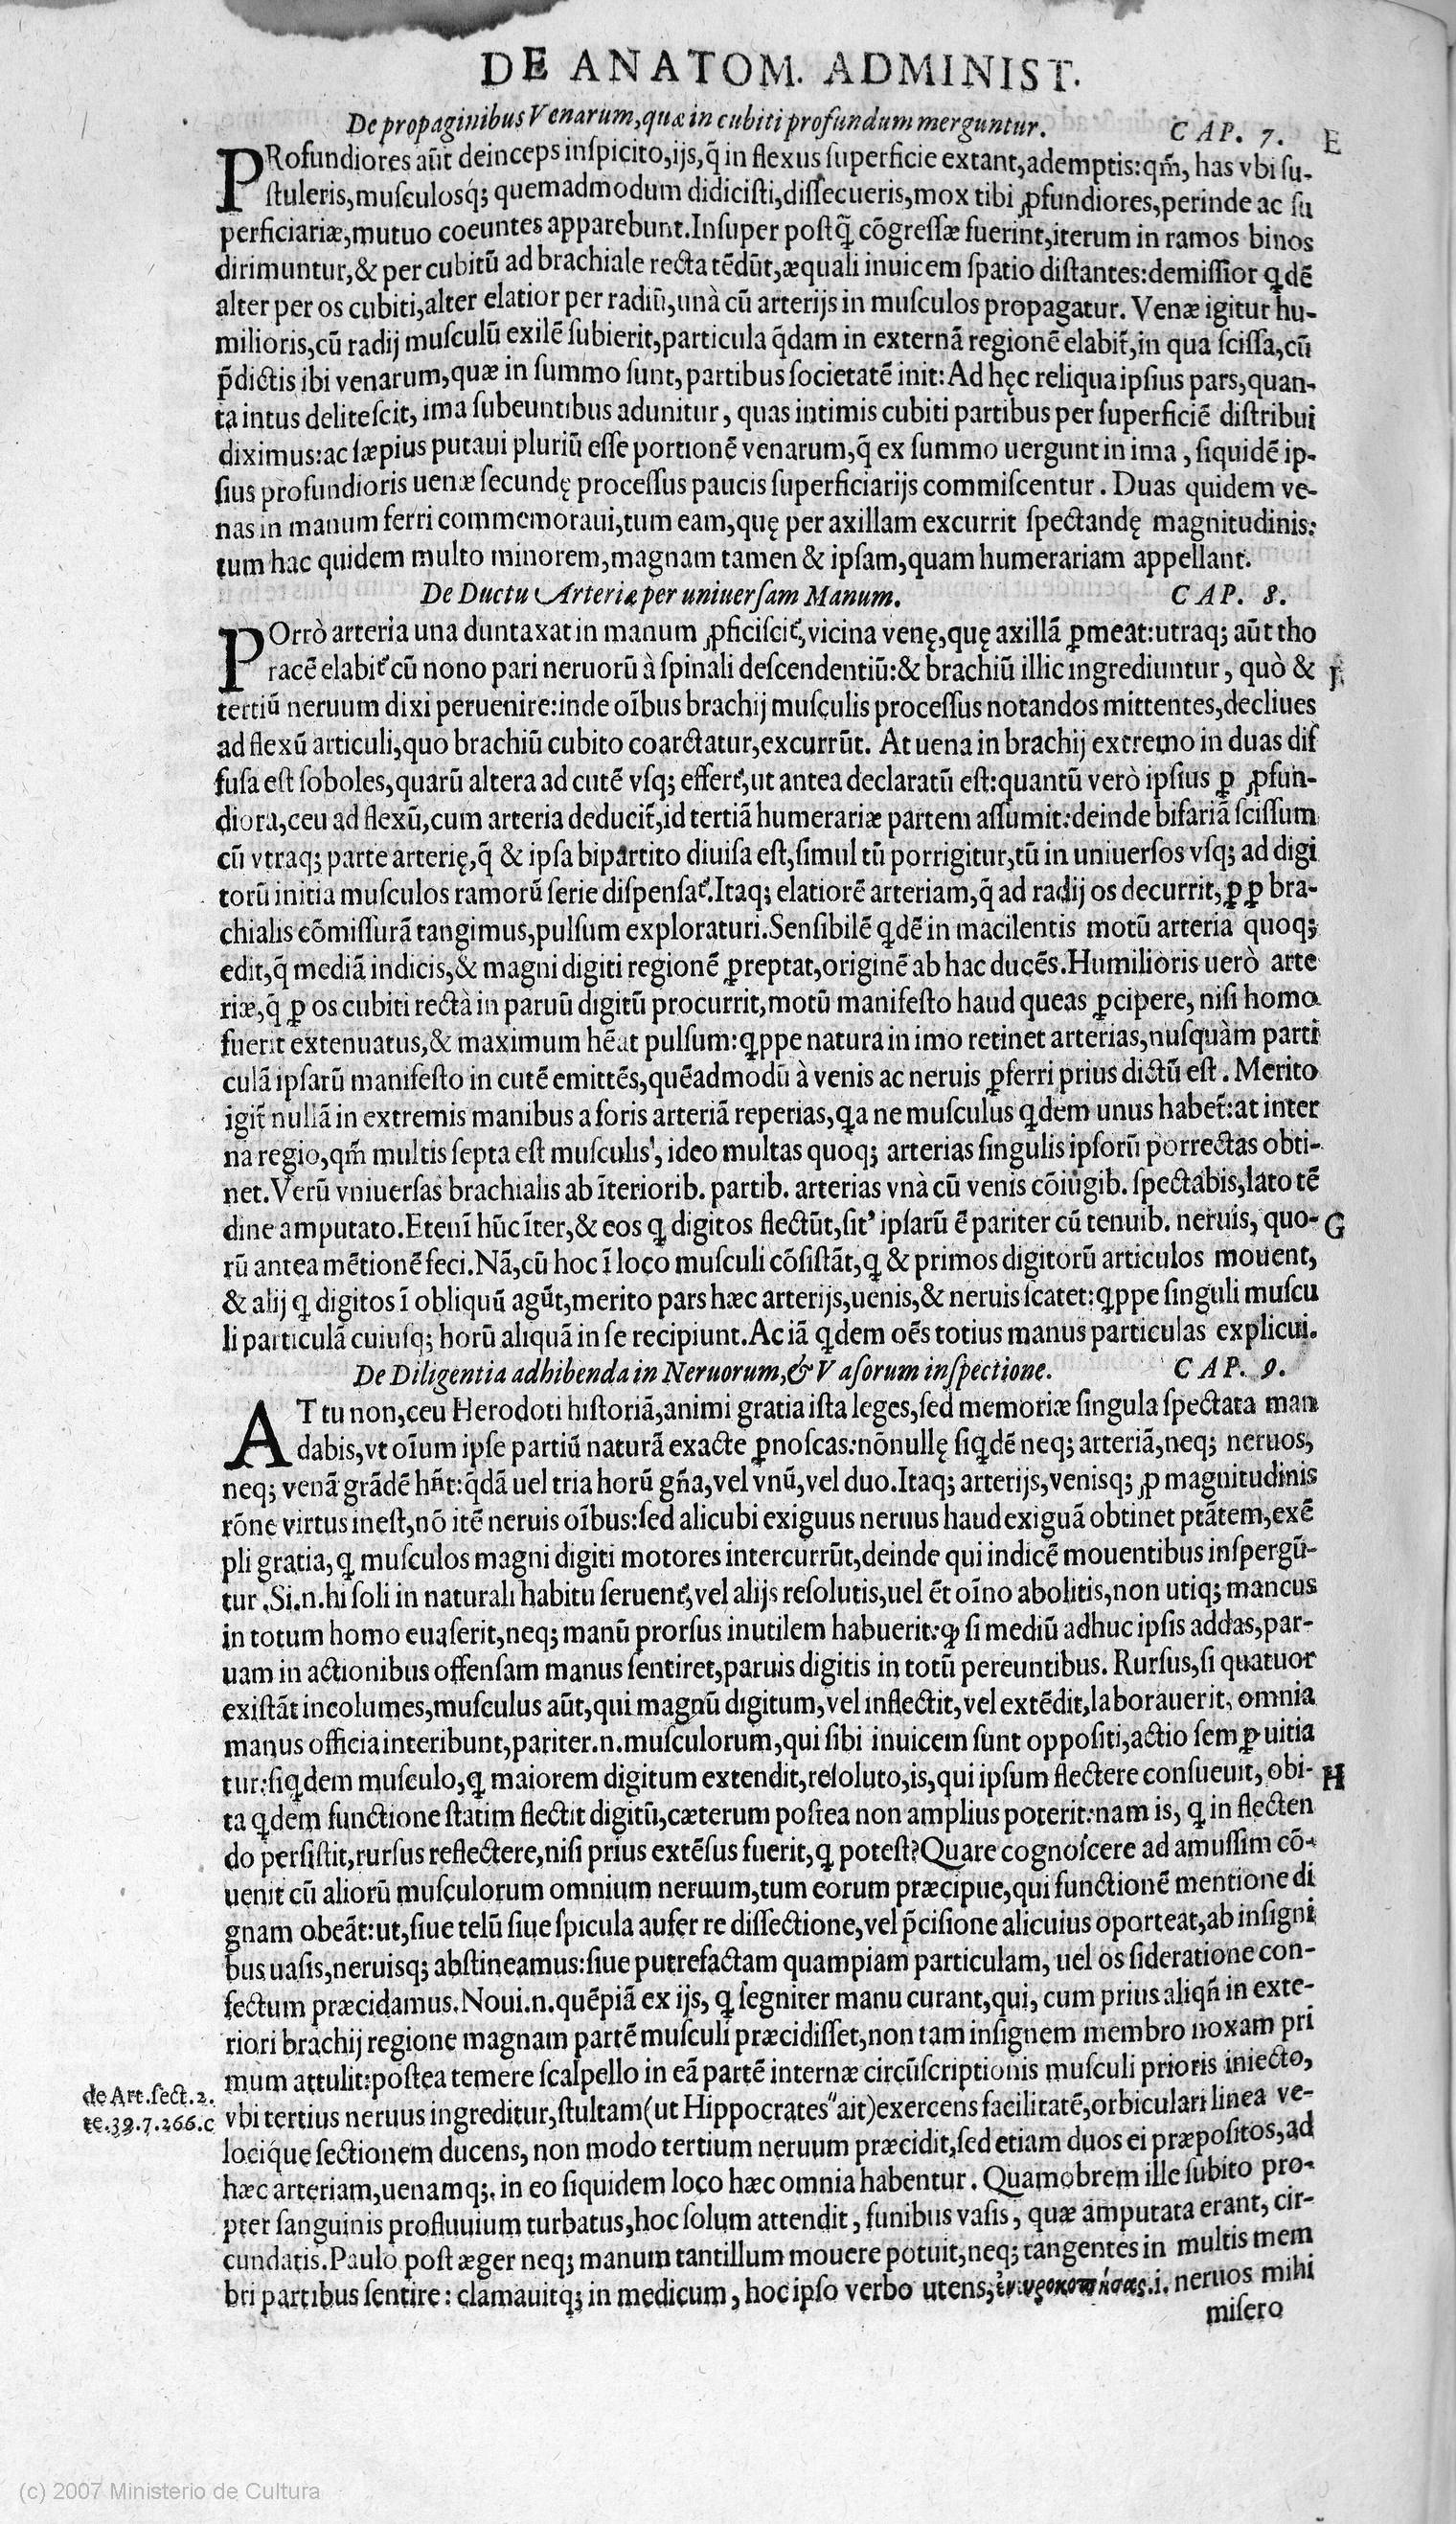 DE ANATOM. ADMINIST.
De propaginibus Venarum, quæ in cubiti profundum merguntur. CAP. 7. E
PRofundiores aũt deinceps inspicito, ijs, q̃ in flexus superficie extant, ademptis: qm̃, has vbi su-
stuleris, musculosq́; quemadmodum didicisti, dissecueris, mox tibi ꝓfundiores, perinde ac su
perficiariæ, mutuo coeuntes apparebunt. Insuper postq̃ cõgressæ fuerint, iterum in ramos binos
dirimuntur, & per cubitũ ad brachiale recta tẽdũt, æquali inuicem spatio distantes: demissior qdẽ
alter per os cubiti, alter elatior per radiũ, unà cũ arterijs in musculos propagatur. Venæ igitur hu-
milioris, cũ radij musculũ exilẽ subierit, particula q̃dam in externã regionẽ elabit̃, in qua scissa, cũ
p̃dictis ibi venarum, quæ in summo sunt, partibus societatẽ init: Ad hęc reliqua ipsius pars, quan-
ta intus delitescit, ima subeuntibus adunitur, quas intimis cubiti partibus per superficiẽ distribui
diximus: ac sæpius putaui pluriũ esse portionẽ venarum, q̃ ex summo uergunt in ima, siquidẽ ip-
sius profundioris uenæ secundę processus paucis superficiarijs commiscentur. Duas quidem ve-
nas in manum ferri commemoraui, tum eam, quę per axillam excurrit spectandę magnitudinis:
tum hac quidem multo minorem, magnam tamen & ipsam, quam humerariam appellant.
De Ductu Arteriæ per uniuersam Manum. CAP. 8.
POrrò arteria una duntaxat in manum ꝓficiscit̃, vicina venę, quę axillã ꝑmeat: utraq; aũt tho
racẽ elabit̃ cũ nono pari neruorũ à spinali descendentiũ: & brachiũ illic ingrediuntur, quò &
tertiũ neruum dixi peruenire: inde oĩbus brachij musculis processus notandos mittentes, decliues
ad flexũ articuli, quo brachiũ cubito coarctatur, excurrũt. At uena in brachij extremo in duas dif
fusa est soboles, quarũ altera ad cutẽ vsq; effert̃, ut antea declaratũ est: quantũ verò ipsius ꝑ ꝓfun-
diora, ceu ad flexũ, cum arteria deducit̃, id tertiã humerariæ partem assumit: deinde bifariã scissum
cũ vtraq; parte arterię, q̃ & ipsa bipartito diuisa est, simul tũ porrigitur, tũ in uniuersos vsq; ad digi
torũ initia musculos ramorũ serie dispensat̃. Itaq; elatiorẽ arteriam, q̃ ad radij os decurrit, ꝑ ꝑ bra-
chialis cõmissurã tangimus, pulsum exploraturi. Sensibilẽ qdẽ in macilentis motũ arteria quoq;
edit, q̃ mediã indicis, & magni digiti regionẽ ꝑreptat, originẽ ab hac ducẽs. Humilioris uerò arte
riæ, q̃ ꝑ os cubiti rectà in paruũ digitũ procurrit, motũ manifesto haud queas ꝑcipere, nisi homo
fuerit extenuatus, & maximum hẽat pulsum: qppe natura in imo retinet arterias, nusquàm parti
culã ipsarũ manifesto in cutẽ emittẽs, quẽadmodũ à venis ac neruis ꝑferri prius dictũ est. Merito
igit̃ nullã in extremis manibus a foris arteriã reperias, qa ne musculus qdem unus habet̃: at inter
na regio, qm̃ multis septa est musculis, ideo multas quoq; arterias singulis ipsorũ porrectas obti-
net. Verũ vniuersas brachialis ab ĩteriorib. partib. arterias vnà cũ venis cõiũgib. spectabis, lato tẽ
dine amputato. Etenĩ hũc ĩter, & eos q digitos flectũt, sit’ ipsarũ ẽ pariter cũ tenuib. neruis, quo- G
rũ antea mẽtionẽ feci. Nã, cũ hoc ĩ loco musculi cõsistãt, q & primos digitorũ articulos mouent,
& alij q digitos ĩ obliquũ agũt, merito pars hæc arterijs, uenis, & neruis scatet: qppe singuli muscu
li particulã cuiusq; horũ aliquã in se recipiunt. Ac iã qdem oẽs totius manus particulas explicui.
De Diligentia adhibenda in Neruorum, & Vasorum inspectione. CAP. 9.
AT tu non, ceu Herodoti historiã, animi gratia ista leges, sed memoriæ singula spectata man
dabis, vt oĩum ipse partiũ naturã exacte ꝑnoscas: nõnullę siqdẽ neq; arteriã, neq; neruos,
neq; venã grãdẽ hñt: q̃dã uel tria horũ gñа, vel vnũ, vel duo. Itaq; arterijs, venisq; ꝓ magnitudinis
rõne virtus inest, nõ itẽ neruis oĩbus: sed alicubi exiguus neruus haud exiguã obtinet ptãtem, exẽ
pli gratia, q musculos magni digiti motores intercurrũt, deinde qui indicẽ mouentibus inspergũ-
tur. Si .n. hi soli in naturali habitu seruent̃, vel alijs resolutis, uel ẽt oĩno abolitis, non utiq; mancus
in totum homo euaserit, neq; manũ prorsus inutilem habuerit: qꝫ si mediũ adhuc ipsis addas, par-
uam in actionibus offensam manus sentiret, paruis digitis in totũ pereuntibus. Rursus, si quatuor
existãt incolumes, musculus aũt, qui magnũ digitum, vel inflectit, vel extẽdit, laborauerit, omnia
manus officia interibunt, pariter .n. musculorum, qui sibi inuicem sunt oppositi, actio semꝑ uitia
tur: siqdem musculo, q maiorem digitum extendit, resoluto, is, qui ipsum flectere consueuit, obi- H
ta qdem functione statim flectit digitũ, cæterum postea non amplius poterit: nam is, q in flecten
do persistit, rursus reflectere, nisi prius extẽsus fuerit, q potest? Quare cognoscere ad amussim cõ-
uenit cũ aliorũ musculorum omnium neruum, tum eorum præcipue, qui functionẽ mentione di
gnam obeãt: ut, siue telũ siue spicula auferre dissectione, vel p̃cisione alicuius oporteat, ab insigni
bus uasis, neruisq; abstineamus: siue putrefactam quampiam particulam, uel os sideratione con-
fectum præcidamus. Noui .n. quẽpiã ex ijs, q segniter manu curant, qui, cum prius aliqñ in exte-
riori brachij regione magnam partẽ musculi præcidisset, non tam insignem membro noxam pri
mum attulit: postea temere scalpello in eã partẽ internæ circũscriptionis musculi prioris iniecto,
de Art. sect. 2.
te. 39. 7. 266. c
vbi tertius neruus ingreditur, stultam (ut Hippocrates " ait) exercens facilitatẽ, orbiculari linea ve-
locique sectionem ducens, non modo tertium neruum præcidit, sed etiam duos ei præpositos, ad
hæc arteriam, uenamq;. in eo siquidem loco hæc omnia habentur. Quamobrem ille subito pro-
pter sanguinis profluuium turbatus, hoc solum attendit, funibus vasis, quæ amputata erant, cir-
cundatis. Paulo post æger neq; manum tantillum mouere potuit, neq; tangentes in multis mem
bri partibus sentire: clamauitq; in medicum, hoc ipso verbo utens, .i. neruos mihi
misero
(c) 2007 Ministerio de Cultura